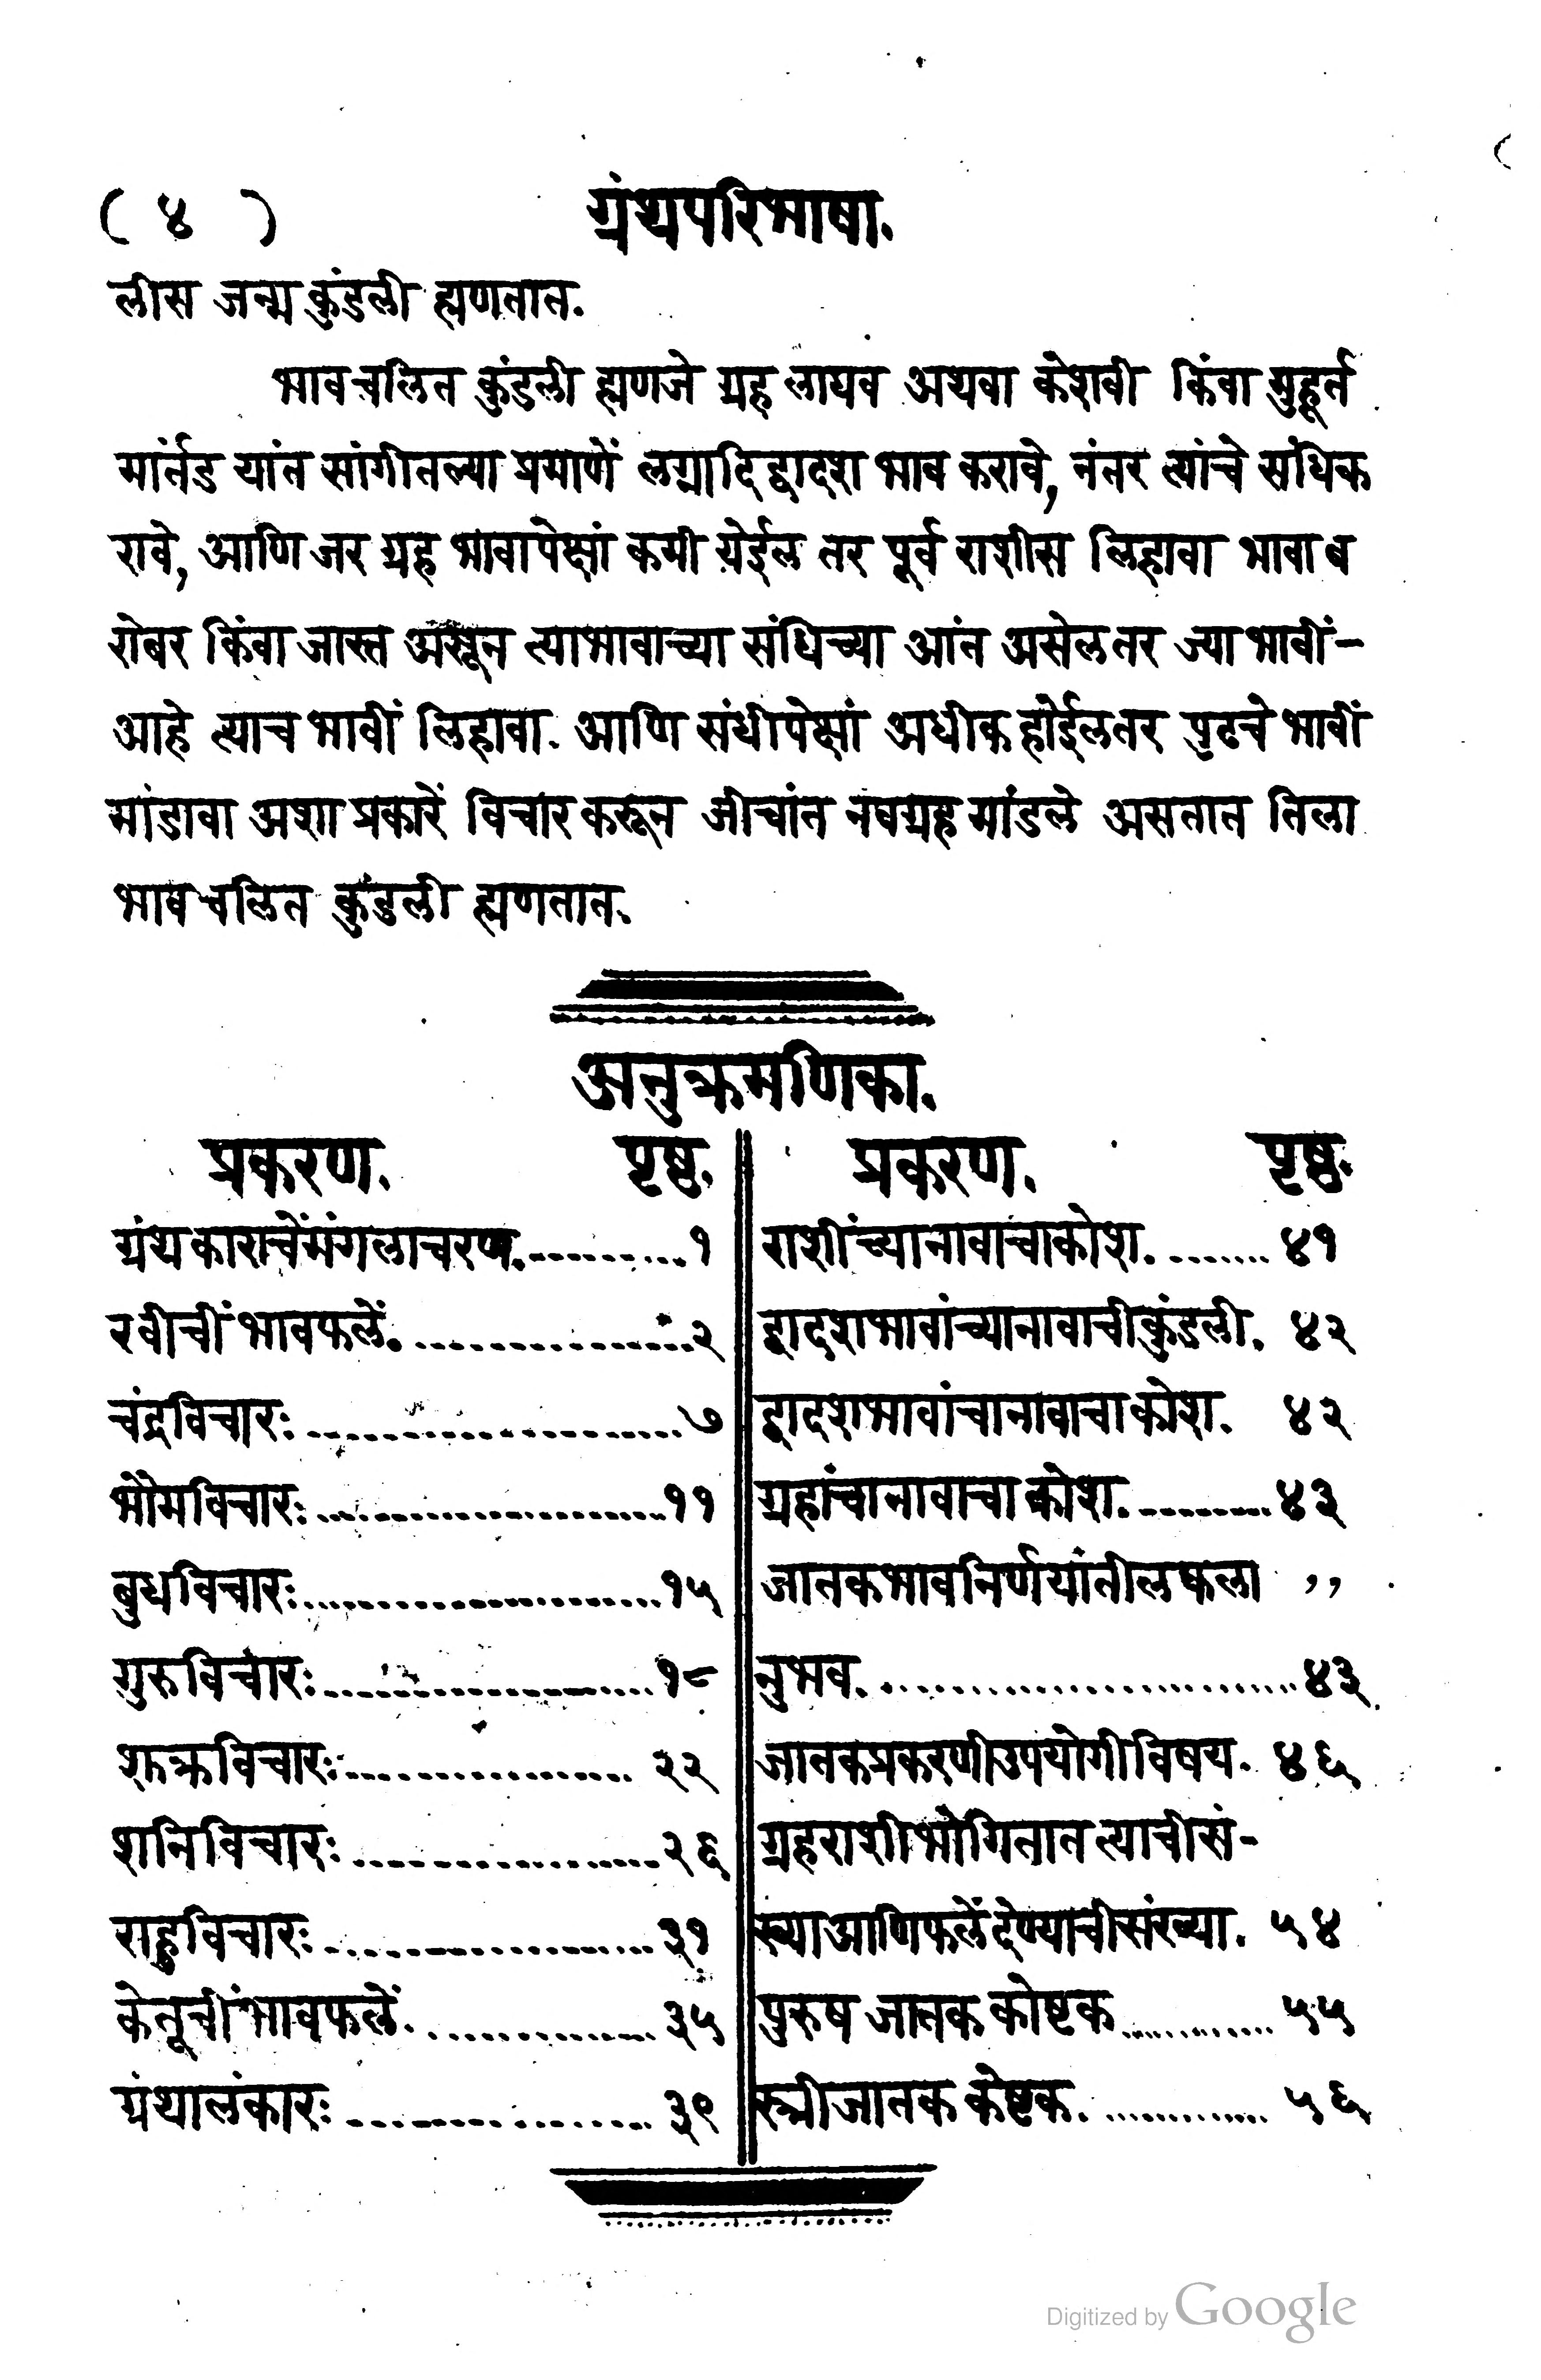 ( ४ ) ग्रंथपरिभाषा.
लीस जन्म कुंडली ह्मणतात.
भावचलित कुंडली ह्मणजे ग्रह लाघव अथवा केशवी किंवा मुहूर्त
मार्तंड यांत सांगीतल्या प्रमाणें लग्नादि द्वादश भाव करावे, नंतर त्यांचे संधिक
रावे, आणि जर ग्रह भावापेक्षां कमी येईल तर पूर्व राशीस लिहावा भावाब
रोबर किंवा जास्त असून त्याभावाच्या संधिच्या आंत असेलतर ज्या भावीं-
आहे त्याच भावीं लिहावा. आणि संधीपेक्षां अधीक होईलतर पुढचे भावीं
मांडावा अशा प्रकारें विचार करून जीचांत नवग्रह मांडले असतात तिला
भावचलित कुंडली ह्मणतात.
अनुक्रमणिका.
प्रकरण. पृष्ठ.
ग्रंथकाराचेंमंगलाचरण...........१
रवीचीं भावफलें..................२
चंद्रविचारः......................७
भौमविचारः......................११
बुधविचारः......................१५
गुरुविचारः......................१८
शुक्रविचारः.................. २२
शनिविचारः....................२६
राहुविचारः.....................३१
केतूचींभावफलें................३५
ग्रंथालंकारः...................३९
प्रकरण. पृष्ठ.
राशींच्यानावाचाकोश.........४१
द्वादशभावांच्यानावाचीकुंडली. ४२
द्वादशभावांचानावाचाकोश. ४२
ग्रहांचानावाचाकोश..........४३
जातकभावनिर्णयांतीलफला ,,
नुभव..........................४३
जातकप्रकरणीउपयोगीविषय. ४६
ग्रहराशीभोगितातत्याचीसं-
ख्याआणिफलेंदेण्याचीसंख्या. ५४
पुरुष जातक कोष्टक............ ५५
स्त्रीजातक कोष्टक............. ५६
Digitized by Google